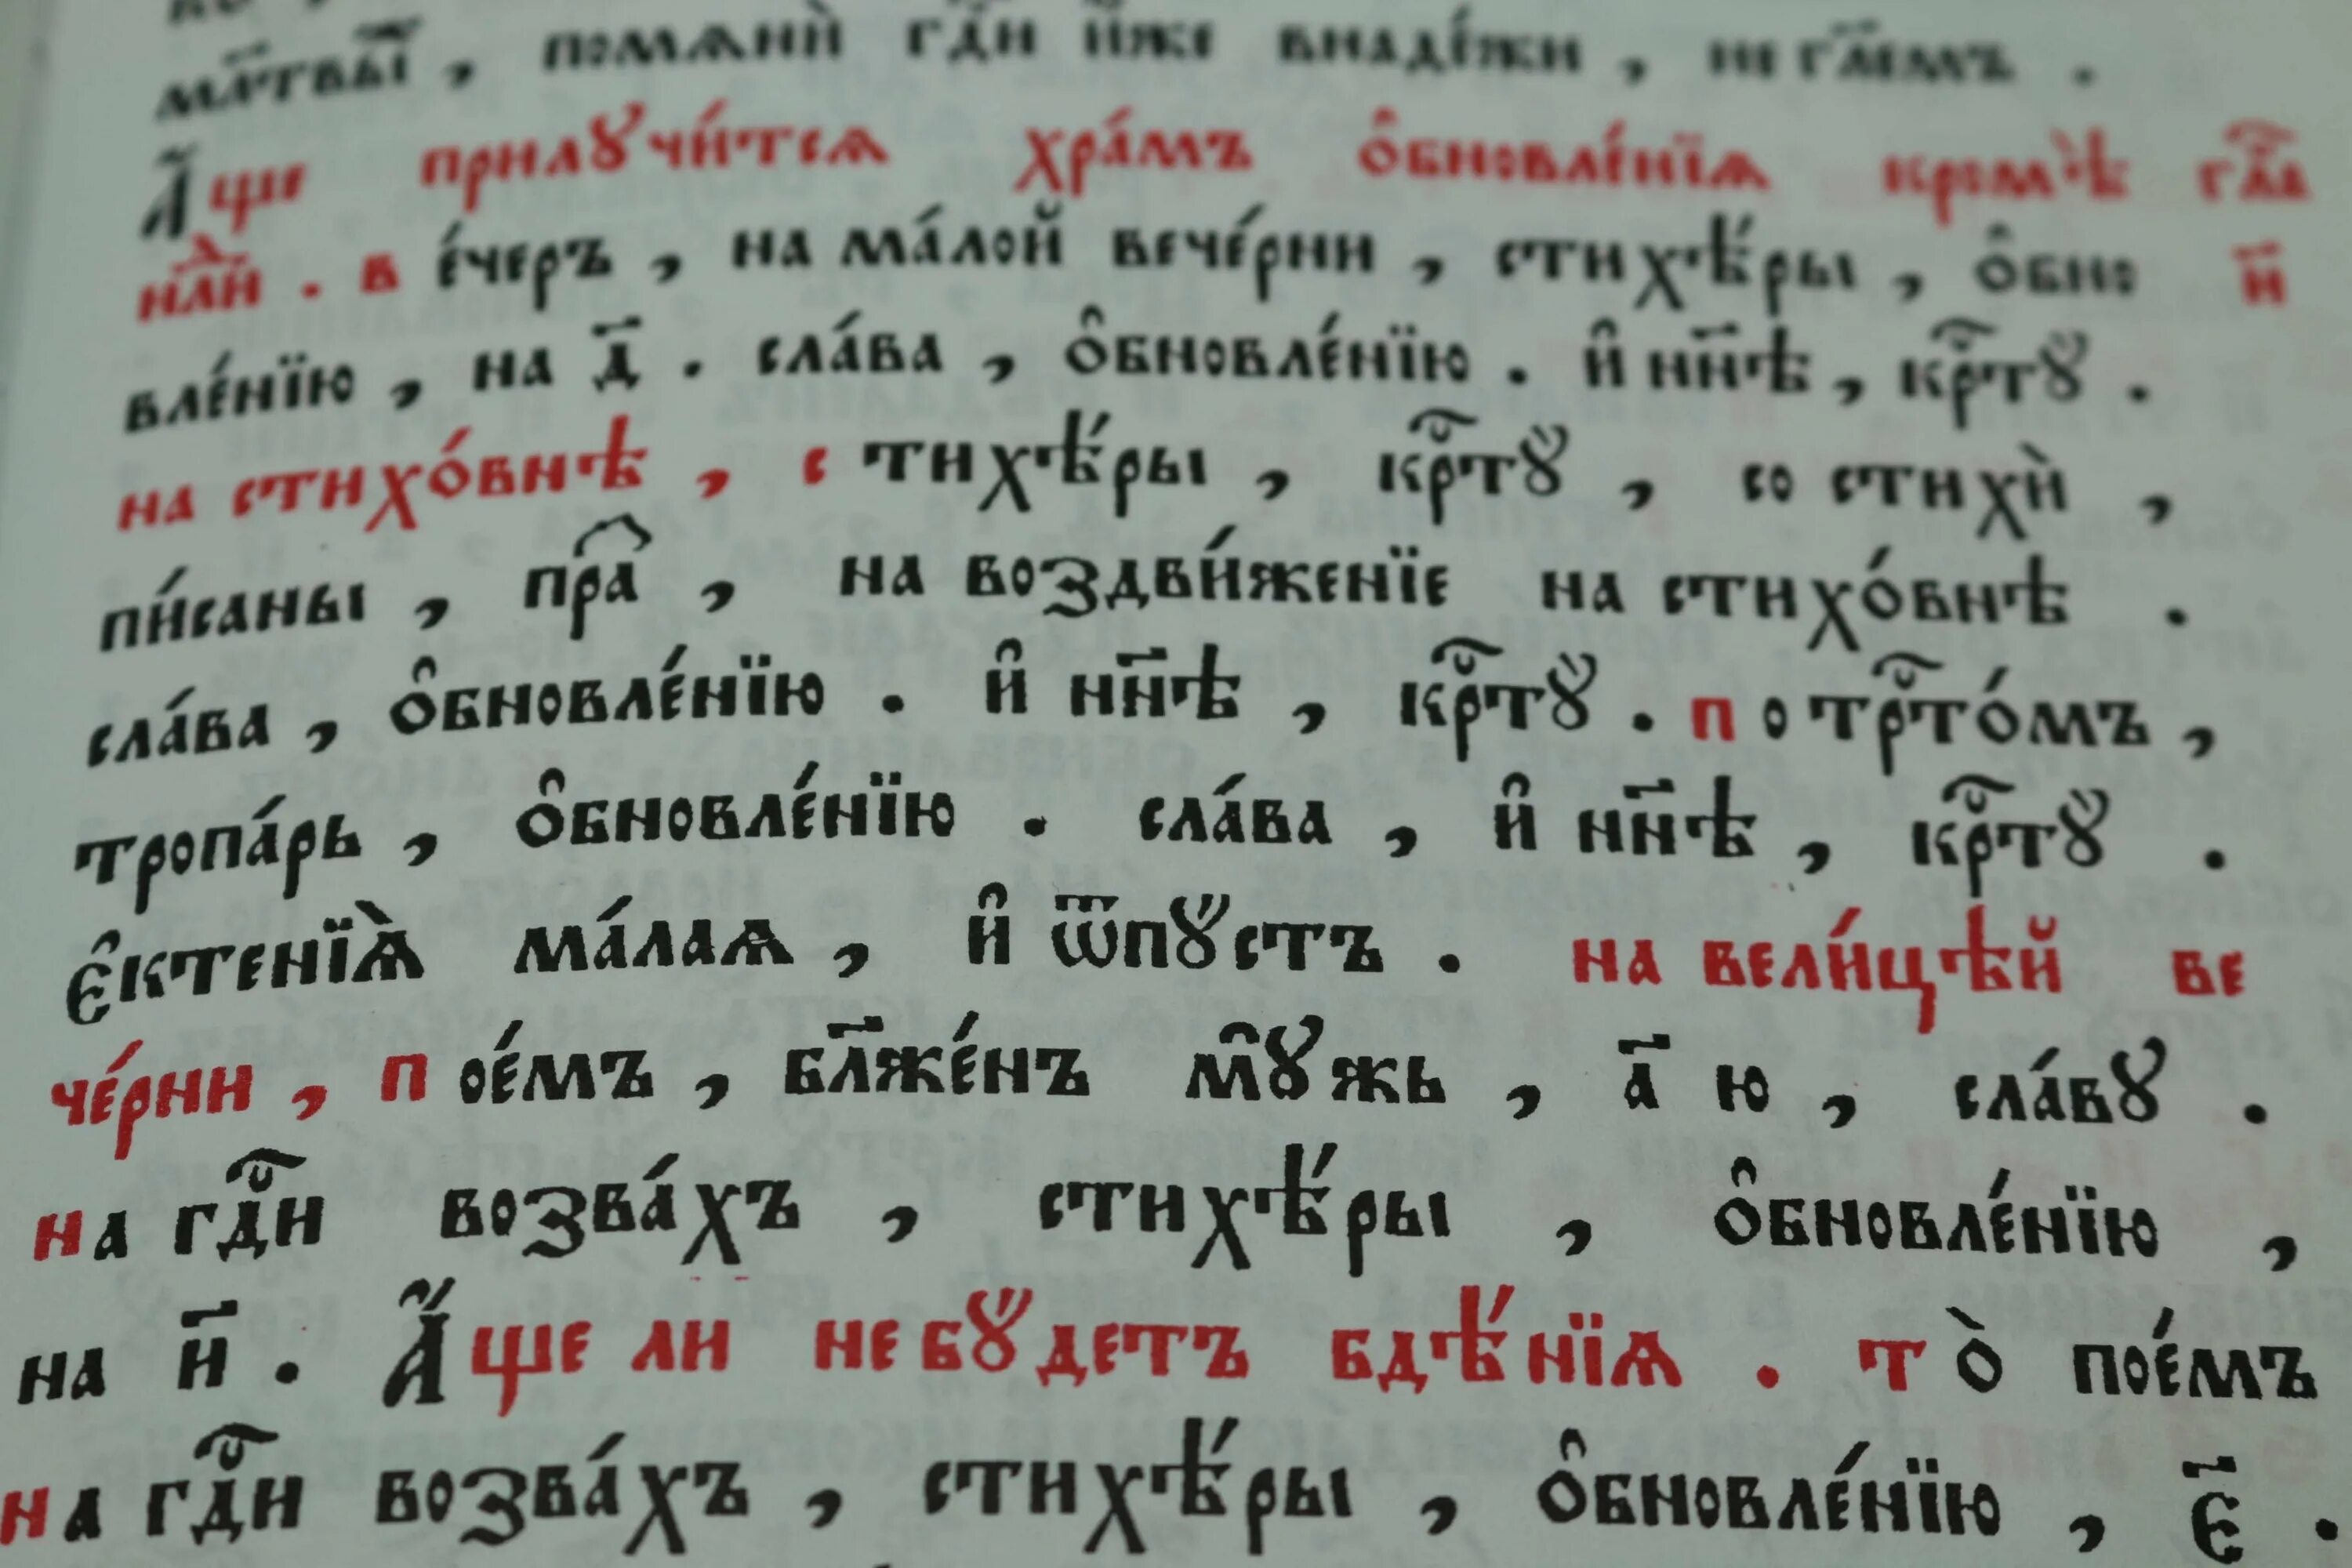 мр҃твы́ѧ , помѧнѝ гдⷭ҇и и҆́же внаде́жи , не гл҃емъ .
А҆́ще прилꙋчи́тсѧ хра́мъ ѻ҆бновле́нїѧ кромѣ̀
. в е́черъ , на ма́лой вече́рни , стихѣ́ры , ѻ҆бно
вле́нїю , на д҃ . сла́ва , ѻ҆бновле́нїю . и҆ нн҃ѣ , крⷭ҇тꙋ̀ .
на стихо́внѣ , с тихѣ́ры , крⷭ҇тꙋ̀ , со стихѝ ,
пи́саны , пра҇ , на воздви́женїе на стихо́внѣ .
сла́ва , ѻ҆бновле́нїю . и҆ нн҃ѣ , крⷭ҇тꙋ̀ . п о трⷭ҇то́мъ ,
тропа́рь , ѻ҆бновле́нїю . сла́ва , и҆ нн҃ѣ , крⷭ҇тꙋ̀ .
є҆ктенїѧ̀ ма́лаѧ , и҆ ѿпꙋ́стъ . на вели́цѣй ве
че́рни , п ое́мъ , бл҃же́нъ мꙋ҆жь , а҃ ю , сла́вꙋ .
на гдⷭ҇и возва́хъ , стихѣ́ры , ѻ҆бновле́нїю ,
на и҃ . А҆́ще ли не бꙋ́детъ бдѣ́нїѧ . т о̀ пое́мъ
на гдⷭ҇и возва́хъ , стихѣ́ры , ѻ҆бновле́нїю , є҃ .